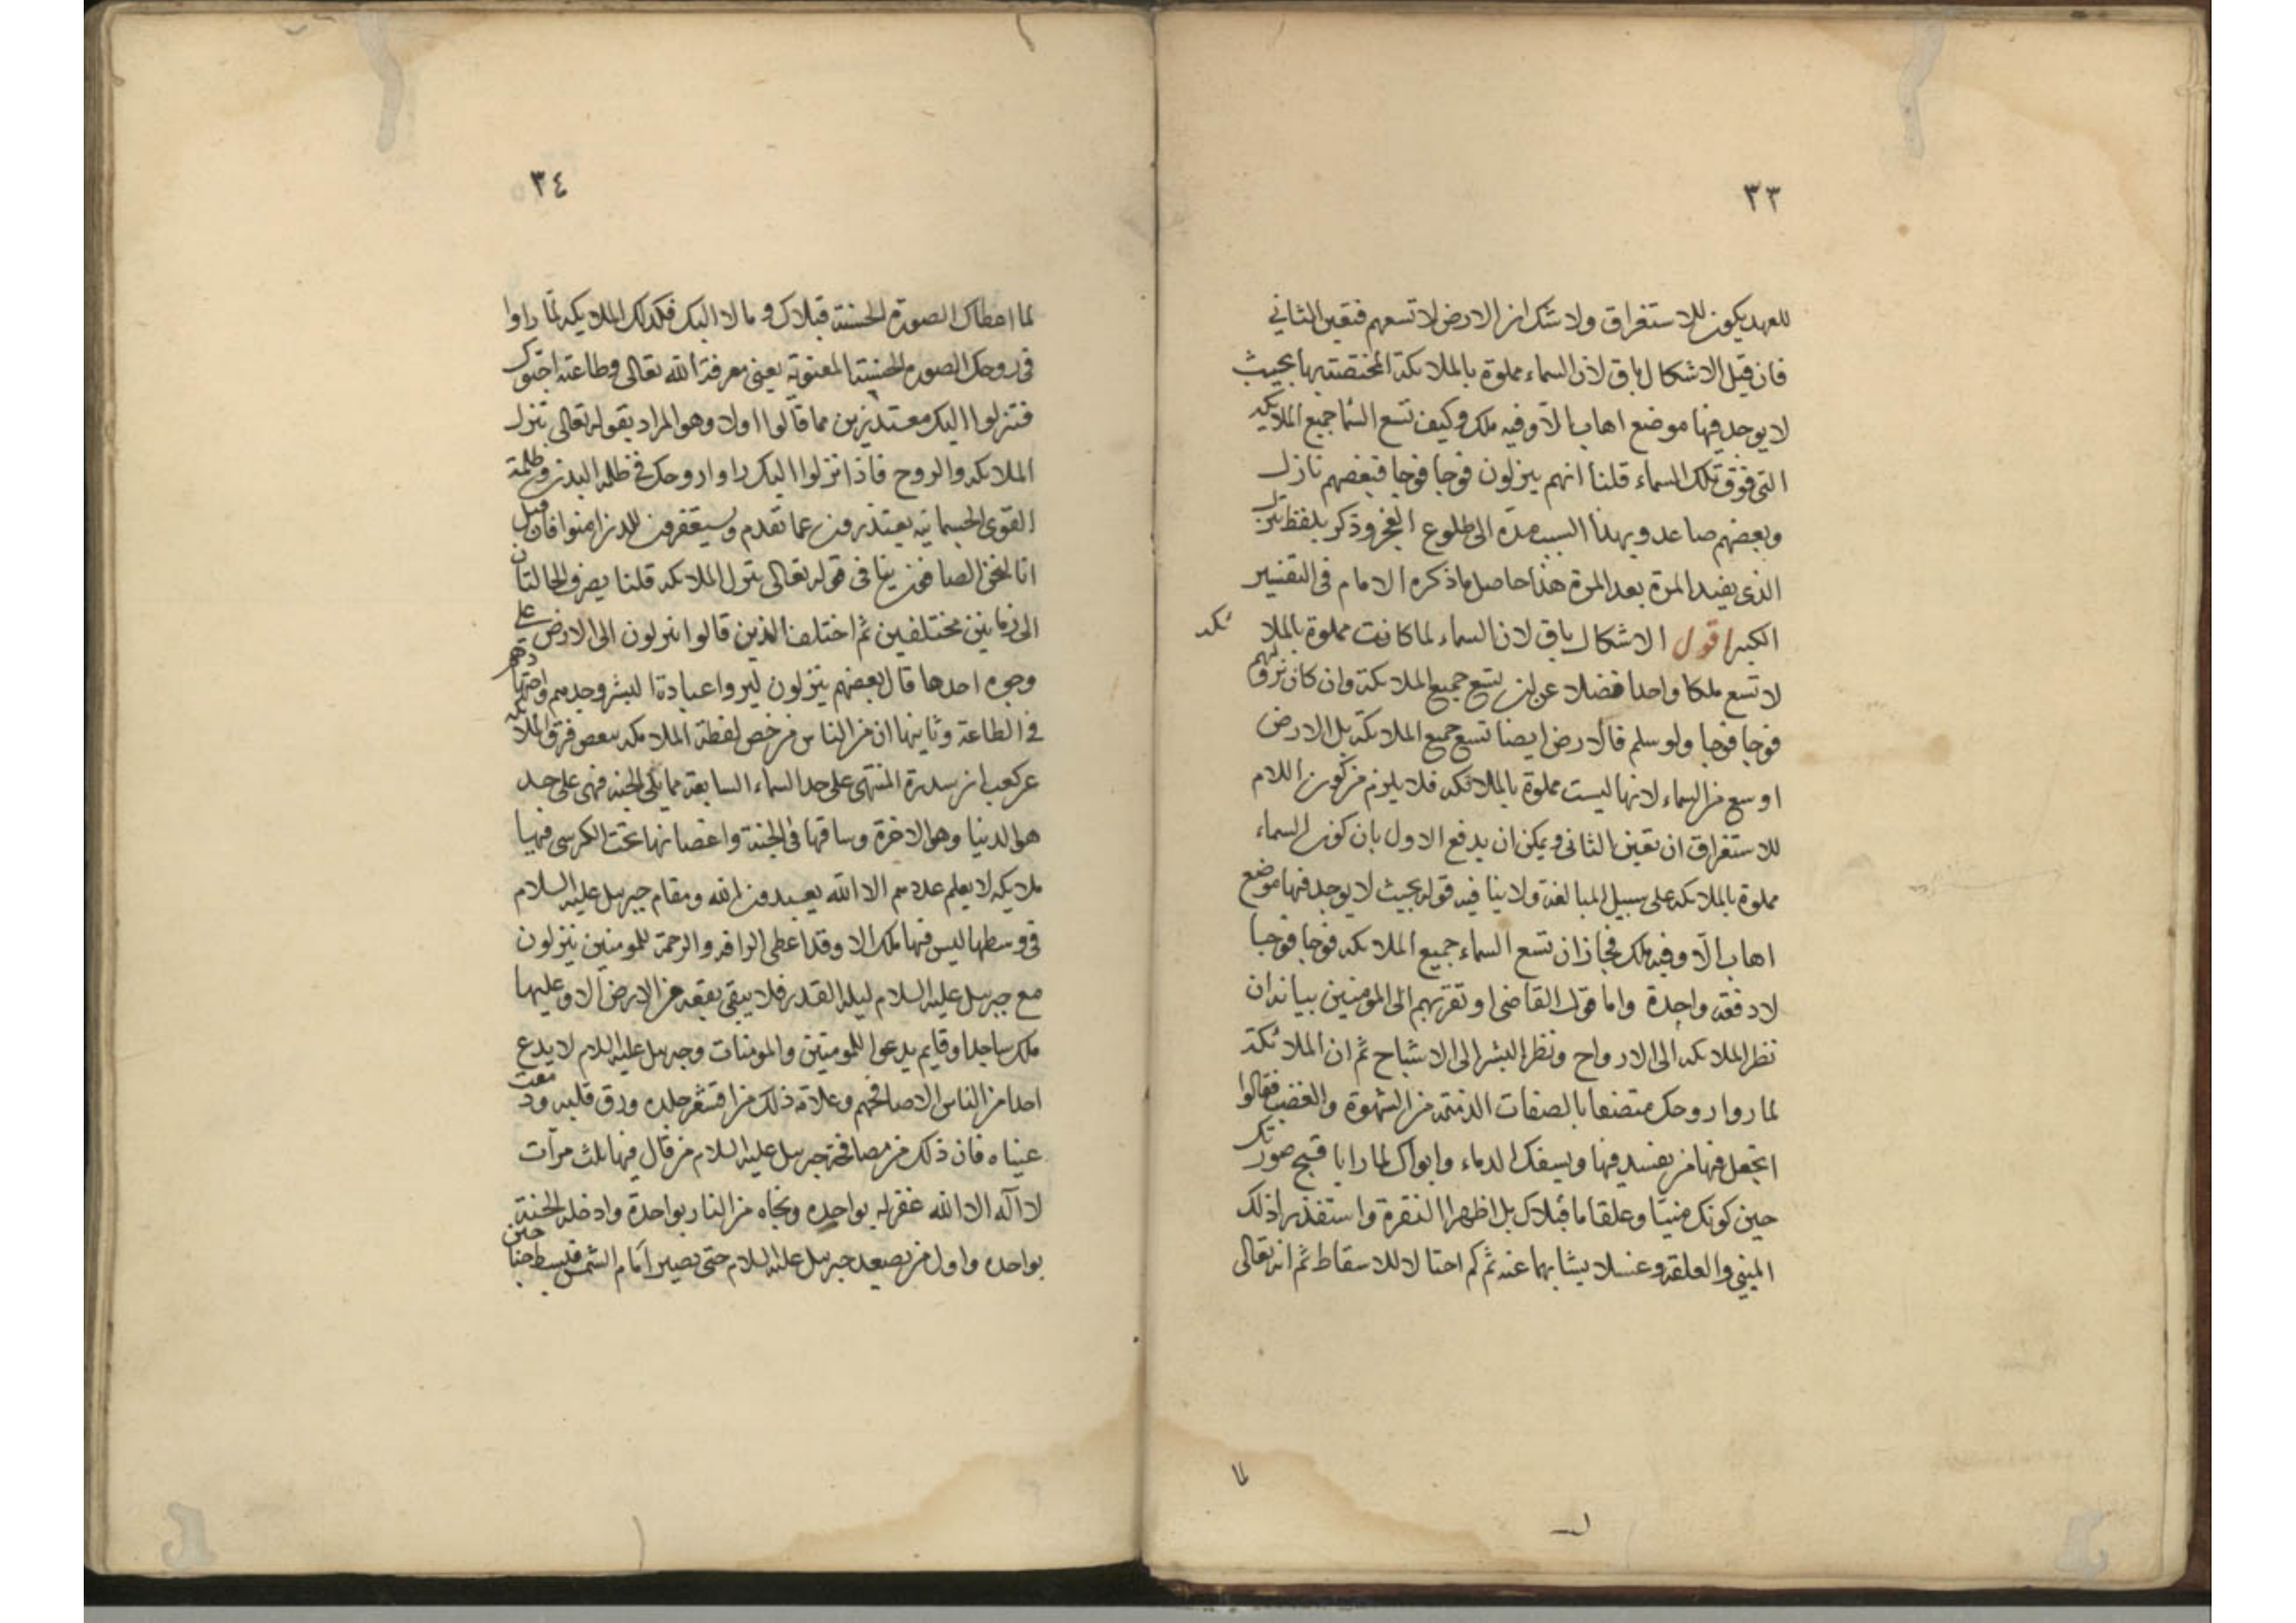 ٣٣
للعهد يكون للاستغراق ولا شك ان الارض لا تسعهم فتعين الثاني
فان قيل الاشكال باق لان السماء مملوة بالملائكة المختصة بها بحيث
لا يوجد فيها موضع اهاب الا وفيه ملك وكيف تسع السما جميع الملائكة
التي فوق تلك السماء قلنا انهم ينزلون فوجا فوجا فبعضهم نازل
وبعضهم صاعد وبهذا السبب مده الى طلوع الفجر وذكر بلفظ تنزل
الذى يفيد المرة بعد المرة هذا حاصل ما ذكره الامام فى التفسير
الكبير اقول الاشكال باق لان السماء لما كانت مملوة بالملا ئكة
لا تسع ملكا واحدا فضلا عن ان تسع جميع الملائكة وان كان نزولهم
فوجا فوجا ولو سلم فالارض ايضا تسع جميع الملائكة بل الارض
اوسع من السماء لانها ليست مملوة بالملائكه فلا يلزم من كون اللام
للاستغراق ان تعين الثانى ويمكن ان يدفع الاول بان كون السماء
مملوة بالملائكه على سبيل المبالغة ولا ينا فيه قوله بحيث لا يوجد فيها موضع
اهاب الا وفيه ملك فجاز ان تسع السماء جميع الملائكه فوجا فوجا
لا دفعة واحدة واما قول القاضى او تقربهم الى المومنين بيانه ان
نظر الملائكه الى الارواح ونظر البشر الى الاشباح ثم ان الملائكة
لما روا روحك متصفا بالصفات الذميمة من الشهوة والغضب فقالوا
اتجعل فيها من يفسد فيها ويسفك الدماء وابواك لما رايا قبيح صورتك
حين كونك منيا وعلقا ما قبلاك بل اظهرا النفرة واستقذرا ذلك
المني والعلقة وغسلا ثيابهما عنه ثم كم احتالا للاسقاط ثم انه تعالى
لما
٣٤
لما اعطاك الصورة الحسنة قبلاك ومالا اليك فكذلك الملايكه لما راوا
فى روحك الصورة الحسنة المعنوية يعنى معرفة الله تعالى وطاعته احبوك
فتنزلوا اليك معتذرين مما قالوا اولا وهو المراد بقوله تعالى تنزل
الملائكه والروح فاذا نزلوا اليك راوا روحك فى ظلمة البدن وظلمة
القوى الجسمانية يعتذرون عما تقدم ويستغفرون للذين امنوا فان قيل
انا لنحن الصافون ينافى قوله تعالى تنزل الملائكه قلنا يصرف الحالتان
الى زمانين مختلفين ثم اختلف الذين قالوا ينزلون الى الارض على
وجوه احدها قال بعضهم ينزلون ليروا عبادة البشر وجدهم واجتهادهم
فى الطاعة وثانيها ان من الناس من خص لفظة الملائكه ببعض فرق الملائكه
عن كعب ان سدرة المنتهى على حد السماء السابعة مما يلى الجنه فهى على حد
هوا الدنيا وهوا الاخرة وساقها فى الجنة واغصانها تحت الكرسى فيها
ملايكه لا يعلم عددهم الا الله يعبدون الله ومقام جبريل عليه السلام
فى وسطها ليس فيها ملك الا وقد اعطى الرافه والرحمة للمومنين ينزلون
مع جبريل عليه السلام ليلة القدر فلا يبقى بقعه من الارض الا وعليها
ملك ساجد او قايم يدعوا للمومنين والمومنات وجبريل عليه السلام لا يدع
احدا من الناس الا صافحهم وعلامة ذلك من اقشعر جلده ورق قلبه ودمعت
عيناه فان ذلك من مصافحة جبريل عليه السلام من قال فيها ثلث مرات
لا اله الا الله غفر له بواحده ونجاه من النار بواحدة وادخله الجنة
بواحده واول من يصعد جبريل عليه السلام حتى يصير امام الشمس فيبسط جناحين